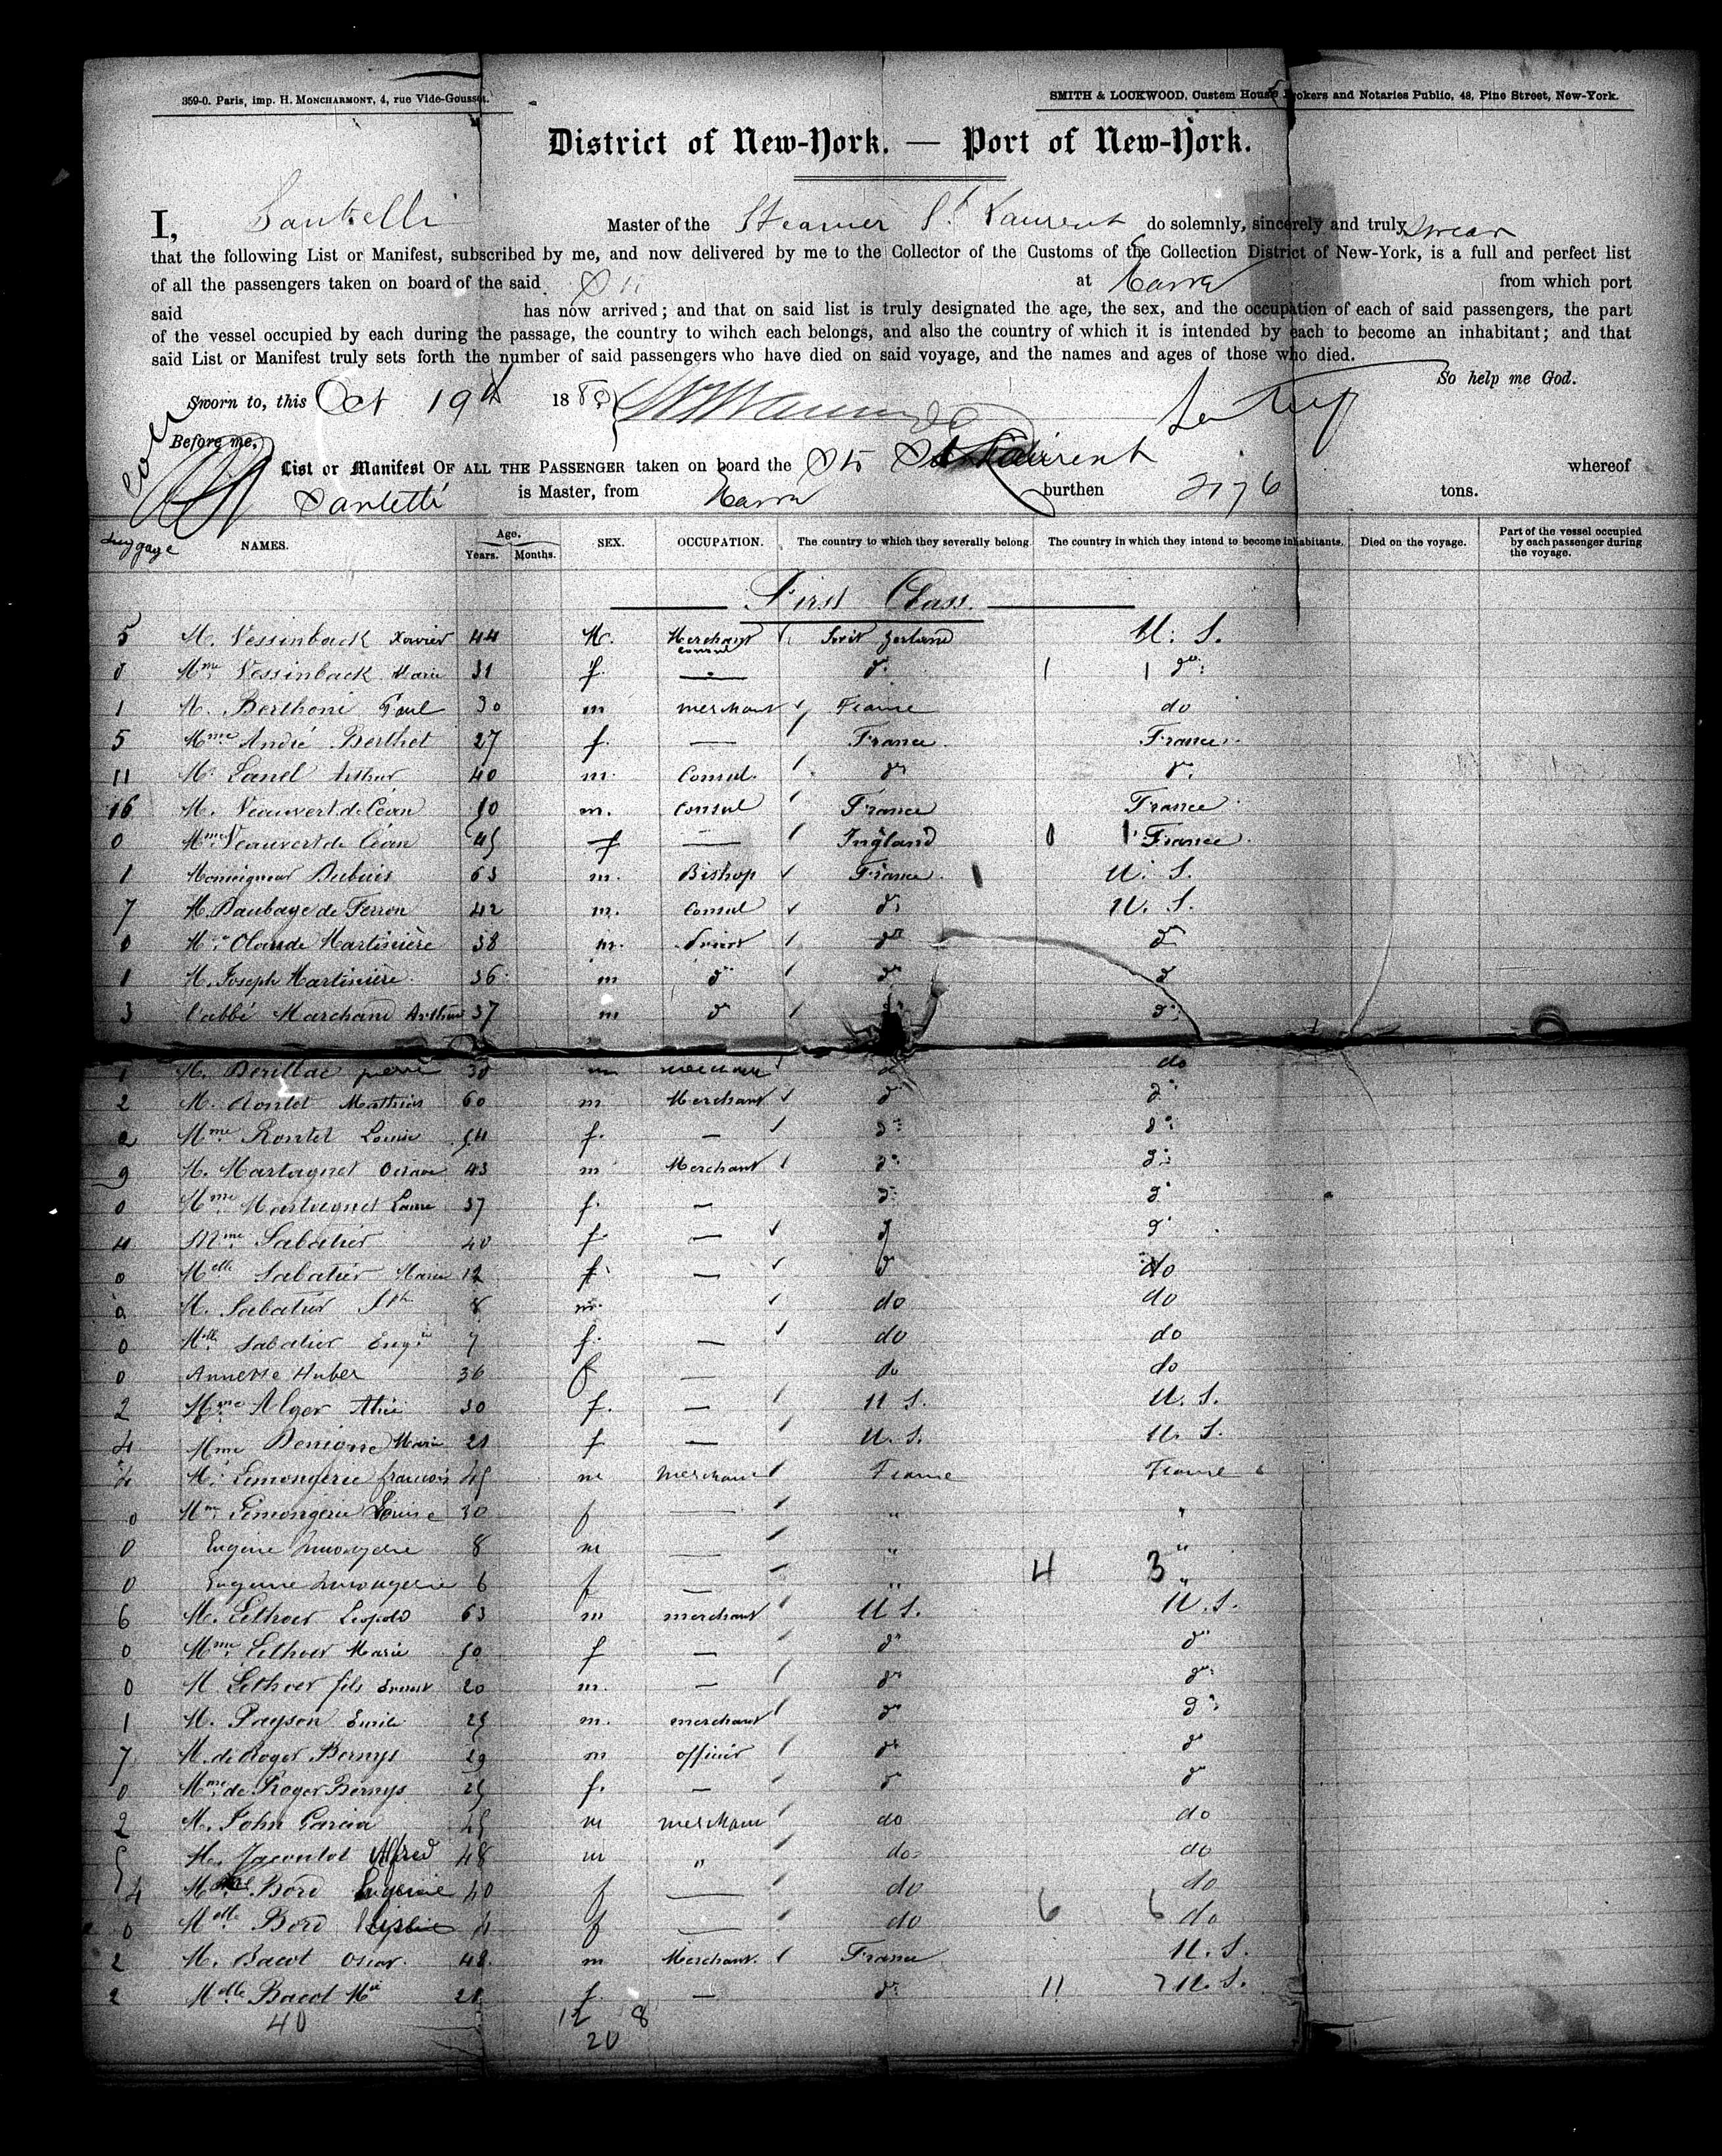 359-0. Paris, imp. H. MONCHARMONT, 4, rue Vide-Gousset.
SMITH & LOCKWOOD, Custom House Brokers and Notaries Public, 48, Pine Street, New-York.
District of New-York. — Port of New-York.
I, Santelli Master of the Steamer St Laurent do solemnly, sincerely and truly swear
that the following List or Manifest, subscribed by me, and now delivered by me to the Collector of the Customs of the Collection District of New-York, is a full and perfect list
of all the passengers taken on board of the said at Havre from which port
said has now arrived; and that on said list is truly designated the age, the sex, and the occupation of each of said passengers, the part
of the vessel occupied by each during the passage, the country to wihch each belongs, and also the country of which it is intended by each to become an inhabitant; and that
said List or Manifest truly sets forth the number of said passengers who have died on said voyage, and the names and ages of those who died.
So help me God.
Sworn to, this Oct 19th 188
Before me,
List or Manifest OF ALL THE PASSENGER taken on board the St Laurent whereof
Santelli is Master, from Havre burthen tons.
luggage NAMES. Age. Years. Months. SEX. OCCUPATION. The country to which they severally belong. The country in which they intend to become inhabitants. Died on the voyage. Part of the vessel occupied by each passenger during the voyage.
First Class.
5 M. Vessinback Xavier 44 M. Merchant consul Swit zerland U. S.
0 Mme Vessinback Marie 31 f. — do 1 1 do
1 M. Berthoni Paul 30 m merchant France do
5 Mme André Berthet 27 f. — France France
11 M. Lanel Arthur 40 m. Consul. do do
16 M. Veauvert de Céan 50 m. Consul France France
0 Mme Veauvert de Céan 45 f — Ingland 0 1 France
1 Monseigneur Dubuis 63 m. Bishop France U. S.
7 M. Daubage de Ferron 42 m. Consul do U. S.
0 M. Claude Martinière 38 m. Priest do do
1 M. Joseph Martinière 36 m do do do
3 l'abbé Marchand Arthur 37 m do do do
1 M. pierre 38 m merchant do do
2 M. Rontet Mathias 60 m Merchant do do
Mme Rontet Louise 54 f. — do do
9 M. Martagnet 43 m Merchant do do
0 Mme Martagnet Laure 37 f. — do do
4 Mme Sabatier 40 f. — do do
0 Melle Sabatier Marie 12 f — do do
0 M. Sabatier 8 m. do do
0 Melle Sabatier 7 f. — do do
0 Annette Huber 36 f — do do
2 Mme Alger Alice 30 f. — U. S. U. S.
4 Mme Marie 21 f — U. S. U. S.
4 M. Limongerie francois 45 m merchant France France
0 Mme Limongerie Louise 30 f — " "
0 Eugene Limongerie 8 m — " "
0 Eugenie Limongerie 6 f — " 4 3 "
6 M. Lethoer Leopold 63 m merchant U S. U. S.
0 Mme Lethoer Marie 50 f — do do
0 M Lethoer fils Ernest 20 m. — do do
1 M. Payson Emile 25 m. merchant do do
7 M. de Roger Bernys 29 m officier do do
0 Mme de Roger Bernys 25 f. — do do
2 M. John Garcia 45 m merchant do do
5 M. Jacontot Alfred 48 m " do do
4 Mme Bord Eugenie 40 f — do do
0 Melle Bord 4 f — do 6 6 do
2 M. Bacot Oscar 48 m Merchant. France U. S.
2 Melle Bacot Mie 21 f. — do 11 7 U. S.
40 12 8
20